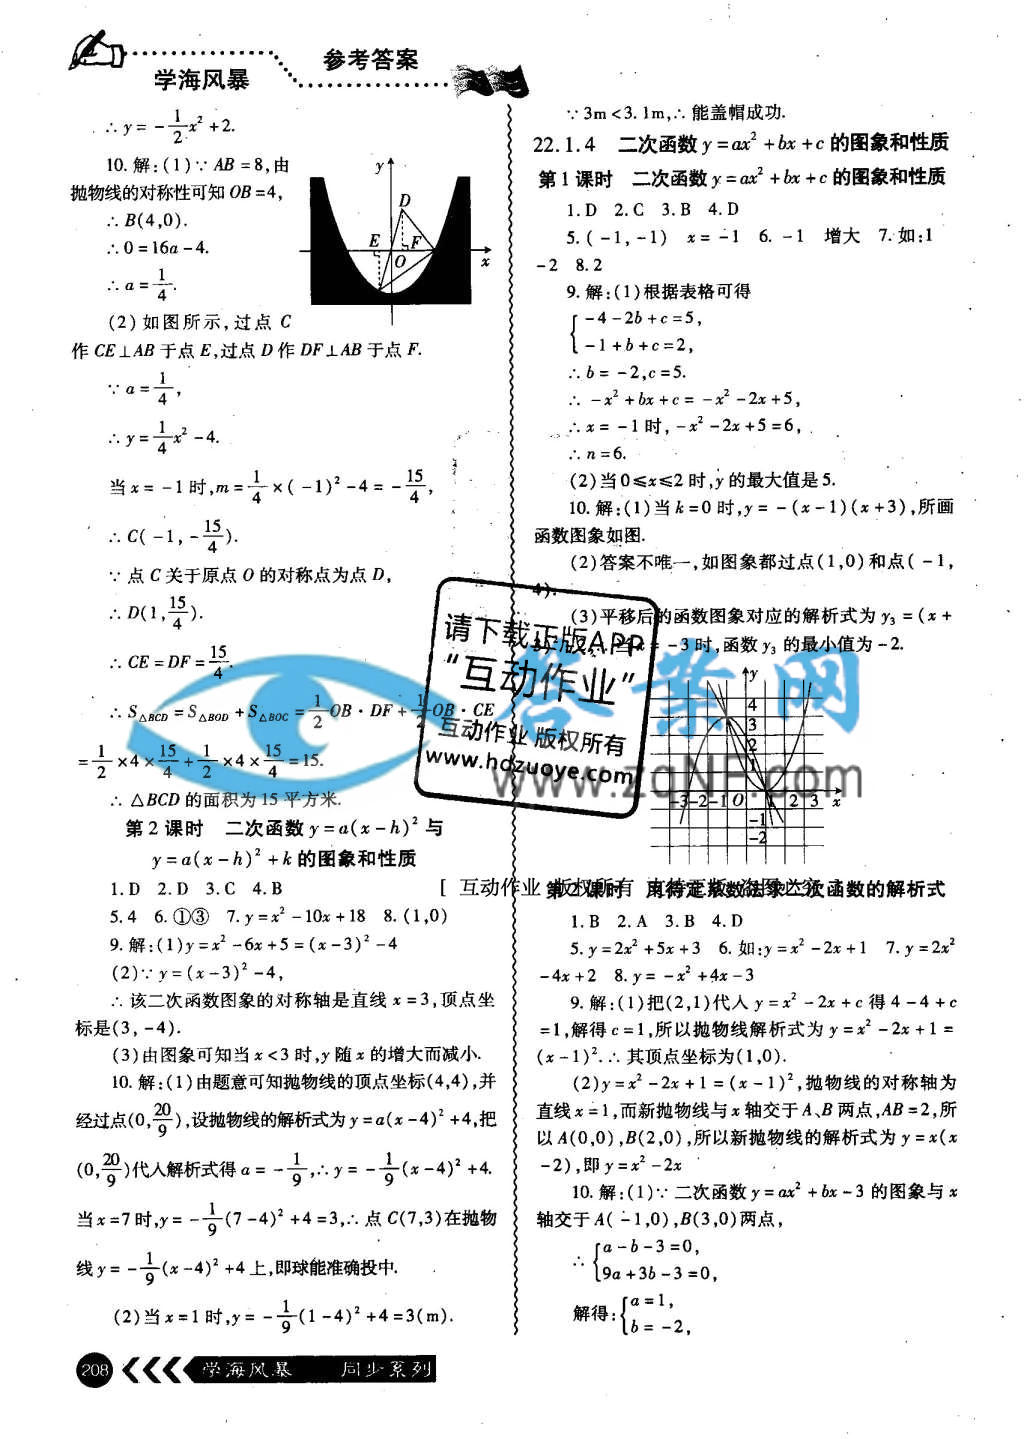 学海风暴
参考答案
∴y = -1/2x² +2.
10.解:(1)∵ AB =8,由
抛物线的对称性可知 OB =4,
∴B(4,0).
∴0 =16a -4.
∴a = 1/4.
(2)如图所示,过点 C
作 CE⊥AB 于点 E,过点 D 作 DF⊥AB 于点 F.
∵a = 1/4,
∴y = 1/4x² -4.
当 x = -1 时,m = 1/4 ×( -1)² -4 = -15/4,
∴C( -1, -15/4).
∵点 C 关于原点 O 的对称点为点 D,
∴D(1,15/4).
∴CE = DF = 15/4.
∴S△BCD = S△BOD + S△BOC = 1/2OB · DF + 1/2OB · CE
= 1/2 ×4 × 15/4 + 1/2 ×4 × 15/4 =15.
∴△BCD 的面积为 15 平方米.
y
D
E
F
O
x
第 2 课时 二次函数 y = a(x -h)² 与
y = a(x -h)² +k 的图象和性质
1.D 2.D 3.C 4.B
5.4 6.①③ 7.y = x² -10x +18 8.(1,0)
9.解:(1)y = x² -6x +5 = (x -3)² -4
(2)∵y = (x -3)² -4,
∴该二次函数图象的对称轴是直线 x =3,顶点坐
标是(3, -4).
(3)由图象可知当 x <3 时,y 随 x 的增大而减小.
10.解:(1)由题意可知抛物线的顶点坐标(4,4),并
经过点(0,20/9),设抛物线的解析式为 y = a(x -4)² +4,把
(0,20/9)代人解析式得 a = -1/9,∴y = -1/9(x -4)² +4.
当 x =7 时,y = -1/9(7 -4)² +4 =3,∴点 C(7,3)在抛物
线 y = -1/9(x -4)² +4 上,即球能准确投中.
(2)当 x =1 时,y = -1/9(1 -4)² +4 =3(m).
∵3m <3.1m,∴能盖帽成功.
22.1.4 二次函数 y = ax² +bx +c 的图象和性质
第 1 课时 二次函数 y = ax² +bx +c 的图象和性质
1.D 2.C 3.B 4.D
5.( -1, -1) x = -1 6. -1 增大 7.如:1
-2 8.2
9.解:(1)根据表格可得
{ -4 -2b +c =5,
-1 +b +c =2,
∴b = -2,c =5.
∴ -x² +bx +c = -x² -2x +5,
∴x = -1 时, -x² -2x +5 =6,
∴n =6.
(2)当 0≤x≤2 时,y 的最大值是 5.
10.解:(1)当 k =0 时,y = -(x -1)(x +3),所画
函数图象如图.
(2)答案不唯一,如图象都过点(1,0)和点( -1,
4).
(3)平移后的函数图象对应的解析式为 y₃ = (x +
-3 时,函数 y₃ 的最小值为 -2.
y
4
3
2
1
-3-2-1 O 1 2 3 x
-1
-2
请下载正版APP
“互动作业”
互动作业 版权所有
www.hdzuoye.com
答案网
www.zqNF.com
[ 互动作业 版权所有
第 2 课时 用待定系数法求二次函数的解析式
1.B 2.A 3.B 4.D
5.y =2x² +5x +3 6.如:y = x² -2x +1 7.y =2x²
-4x +2 8.y = -x² +4x -3
9.解:(1)把(2,1)代人 y = x² -2x +c 得 4 -4 +c
=1,解得 c =1,所以抛物线解析式为 y = x² -2x +1 =
(x -1)².∴其顶点坐标为(1,0).
(2)y = x² -2x +1 = (x -1)²,抛物线的对称轴为
直线 x =1,而新抛物线与 x 轴交于 A、B 两点,AB =2,所
以 A(0,0),B(2,0),所以新抛物线的解析式为 y = x(x
-2),即 y = x² -2x
10.解:(1)∵二次函数 y = ax² +bx -3 的图象与 x
轴交于 A( -1,0),B(3,0)两点,
∴{a -b -3 =0,
9a +3b -3 =0,
解得:{a =1,
b = -2,
208
学海风暴 同步系列